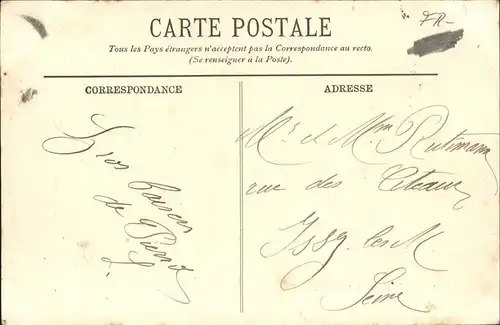 CARTE POSTALE
Tous les Pays étrangers n'acceptent pas la Correspondance au recto.
(Se renseigner à la Poste).
CORRESPONDANCE
ADRESSE
FR-
Gros baisers
de Pierre
Mr et Mme Rutimann
rue des
Issy les M
Seine